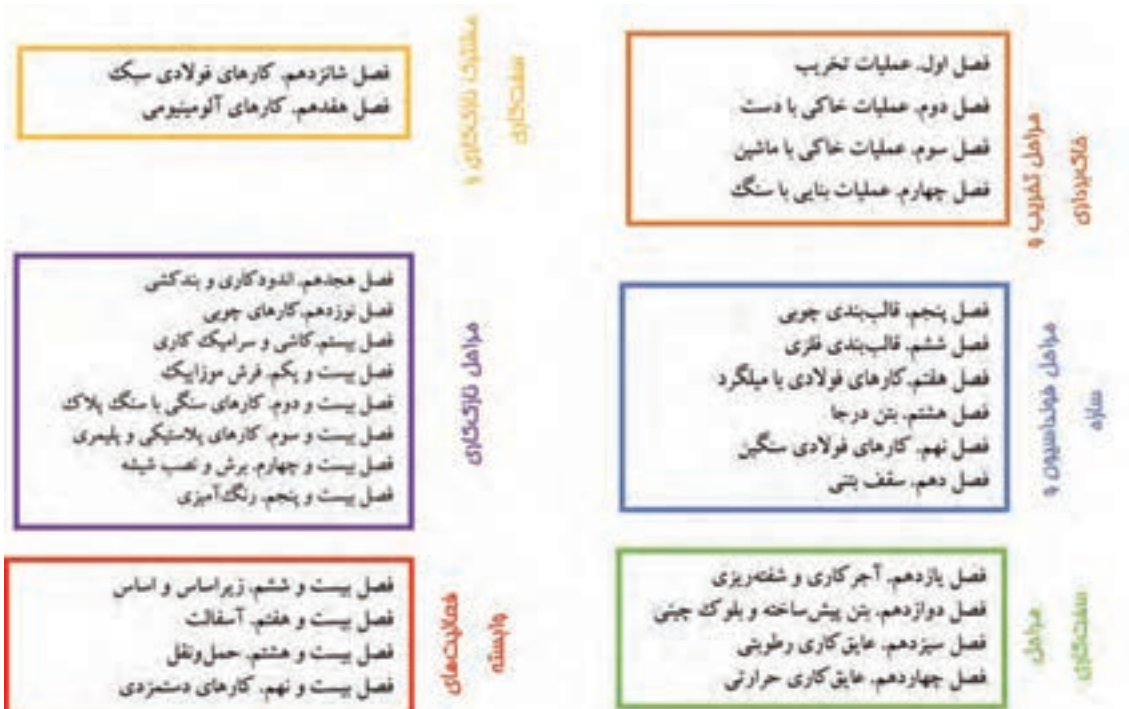 فصل اول. عملیات تخریب
فصل دوم. عملیات خاکی با دست
فصل سوم. عملیات خاکی با ماشین
فصل چهارم. عملیات بنایی با سنگ
مراحل تخریب و
خاکبرداری
فصل پنجم. قالب‌بندی چوبی
فصل ششم. قالب‌بندی فلزی
فصل هفتم. کارهای فولادی با میلگرد
فصل هشتم. بتن درجا
فصل نهم. کارهای فولادی سنگین
فصل دهم. سقف بتنی
مراحل فونداسیون و
سازه
فصل یازدهم. آجرکاری و شفته‌ریزی
فصل دوازدهم. بتن پیش‌ساخته و بلوک چینی
فصل سیزدهم. عایق‌کاری رطوبتی
فصل چهاردهم. عایق‌کاری حرارتی
مراحل
سفت‌کاری
فصل شانزدهم. کارهای فولادی سبک
فصل هفدهم. کارهای آلومینیومی
مشترک نازک‌کاری و
سفت‌کاری
فصل هجدهم. اندودکاری و بندکشی
فصل نوزدهم. کارهای چوبی
فصل بیستم. کاشی و سرامیک کاری
فصل بیست و یکم. فرش موزاییک
فصل بیست و دوم. کارهای سنگی با سنگ پلاک
فصل بیست و سوم. کارهای پلاستیکی و پلیمری
فصل بیست و چهارم. برش و نصب شیشه
فصل بیست و پنجم. رنگ‌آمیزی
مراحل نازک‌کاری
فصل بیست و ششم. زیراساس و اساس
فصل بیست و هفتم. آسفالت
فصل بیست و هشتم. حمل‌ونقل
فصل بیست و نهم. کارهای دستمزدی
فعالیت‌های
وابسته